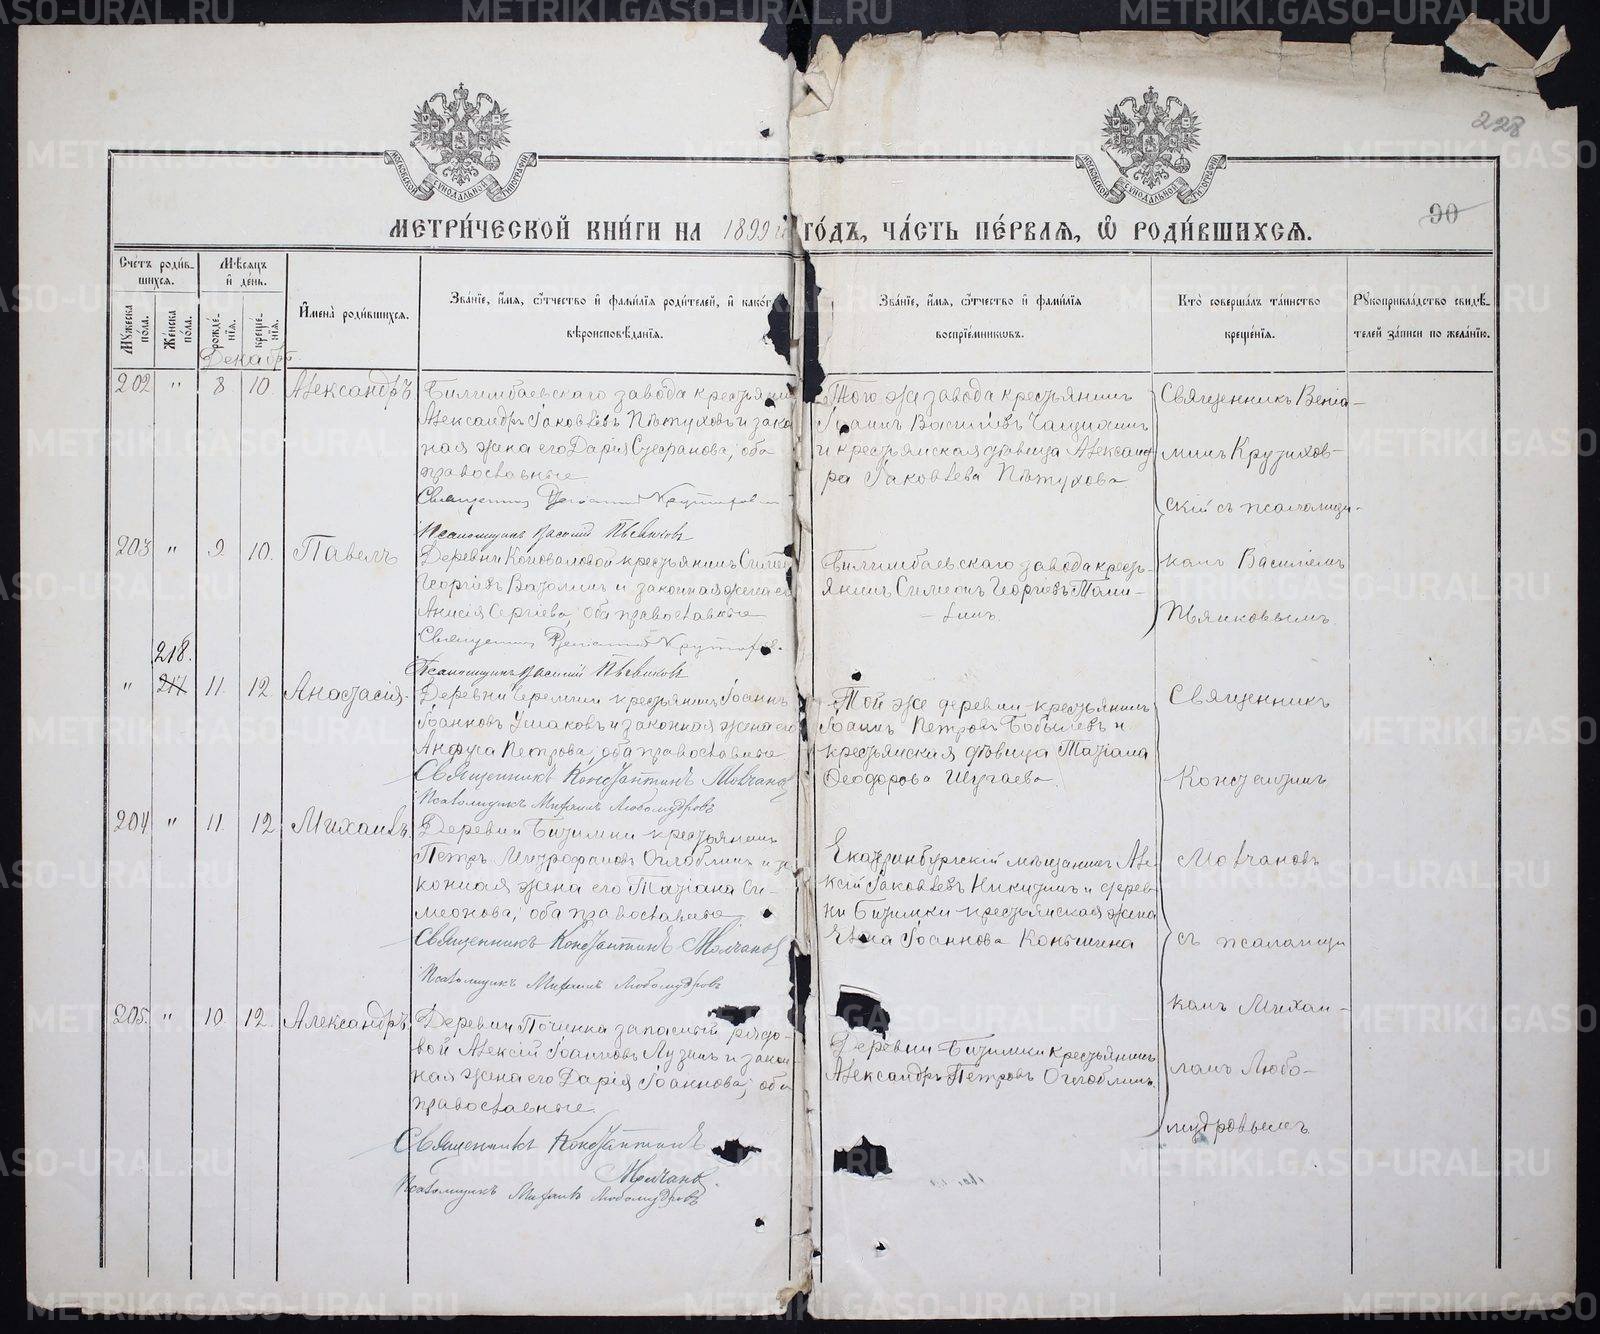 228
90
МОСКОВСКОЙ СѴНОДАЛЬНОЙ ТИПОГРАФІИ
МОСКОВСКОЙ СѴНОДАЛЬНОЙ ТИПОГРАФІИ
МЕТРИ́ЧЕСКОЙ КНИ́ГИ НА 1899 ГО́ДЪ, ЧА́СТЬ ПЕ́РВАѦ, Ѿ РОДИ́ВШИХСѦ.
Сче́тъ роди́вшихсѧ.
Мꙋ́жеска по́ла.
Же́нска по́ла.
Мѣ́сѧцъ и҆ де́нь.
рожде́нїѧ.
креще́нїѧ.
И҆мена̀ роди́вшихсѧ.
Зва́нїе, и҆́мѧ, ѻ҆́тчество и҆ фами́лїѧ роди́телей, и҆ како́гѡ
вѣроисповѣ́данїѧ.
Зва́нїе, и҆́мѧ, ѻ҆́тчество и҆ фами́лїѧ
воспрїе́мникѡвъ.
Кто̀ соверша́лъ та́инство
креще́нїѧ.
Рꙋкоприкла́дство свидѣ́-
телей за́писи по жела́нїю.
Декабрь
202 " 8 10. Александръ
Билимбаевскаго завода крестьянинъ
Александръ Іаковлевъ Пѣтуховъ и зако
ная жена его Дарія Стефанова, оба
православные
Священникъ
Псаломщикъ Василій Пьянковъ
Того же завода крестьянинъ
Іоаннъ Василіевъ
и крестьянская дѣвица Александ
ра Іаковлева Пѣтухова
Священникъ Веніа-
минъ
скій съ псаломщи-
комъ Василіемъ
Пьянковымъ
203 " 9 10. Павелъ
Деревни Коноваловой крестьянинъ
Георгіевъ и законная жена его
Анисія Сергіева, оба православные
Священникъ
Псаломщикъ Василій Пьянковъ
Билимбаевскаго завода кресть-
янинъ Симеонъ Георгіевъ Томи-
линъ.
218.
" 217 11. 12. Анастасія
Деревни крестьянинъ Іоаннъ
Іоанновъ Ушаковъ и законная жена его
Анфуса Петрова, оба православные
Священникъ Константинъ Молчановъ
Псаломщикъ Михаилъ Любомудровъ
Той же деревни крестьянинъ
Іоаннъ Петровъ Бобылевъ и
крестьянская дѣвица Татіана
Ѳеодорова Шугаева.
Священникъ
Константинъ
Молчановъ
съ псаломщи
комъ Михаи-
ломъ Любо-
мудровымъ.
204 " 11. 12 Михаилъ
Деревни Битимки крестьянинъ
Петръ Митрофановъ Оглоблинъ и за
конная жена его Татіана Си-
меонова, оба православные
Священникъ Константинъ Молчановъ
Псаломщикъ Михаилъ Любомудровъ
Екатеринбургскій мѣщанинъ Але
ксій Іаковлевъ Никитинъ и дерев-
ни Битимки крестьянская жена
Елена Іоаннова Конышина
205. " 10. 12. Александръ
Деревни Починка запасный рядо-
вой Алексій Іоанновъ Лузинъ и закон
ная жена его Дарія Іоаннова, оба
православные.
Священникъ Константинъ
Молчановъ.
Псаломщикъ Михаилъ Любомудровъ
Деревни Битимки крестьянинъ
Александръ Петровъ Оглоблинъ.
METRIKI.GASO-URAL.RU